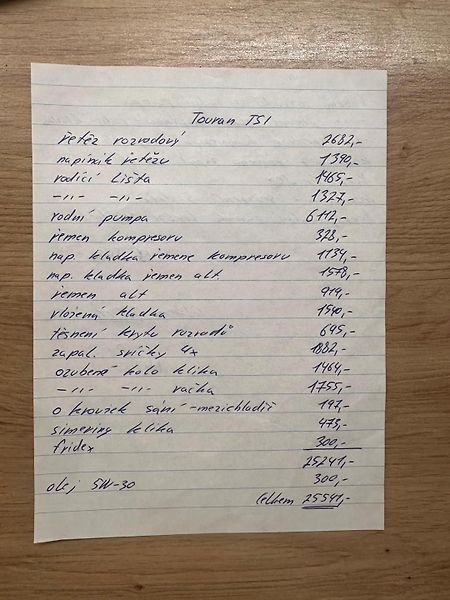 Touran TSI
řetěz rozvodový 2682,-
napínák řetězu 1390,-
vodící Lišta 1465,-
-,,- -,,- 1327,-
vodní pumpa 6112,-
řemen kompresoru 328,-
nap. kladka řemene kompresoru 1134,-
nap. kladka řemen alt. 1578,-
řemen alt 919,-
vložená kladka 1540,-
těsnění krytu rozvodů 695,-
zapal. svíčky 4x 1882,-
ozubené kolo klika 1464,-
-,,- -,,- vačka 1755,-
o kroužek sání -mezichladič 197,-
simering klika 473,-
fridex 300,-
25241,-
olej 5W-30 300,-
Celkem 25541,-